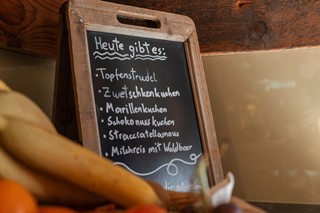 Heute gibt es:
• Topfenstrudel
• Zwetschkenkuchen
• Marillenkuchen
• Schokonusskuchen
• Stracciatellamous
• Milchreis mit Waldbeer